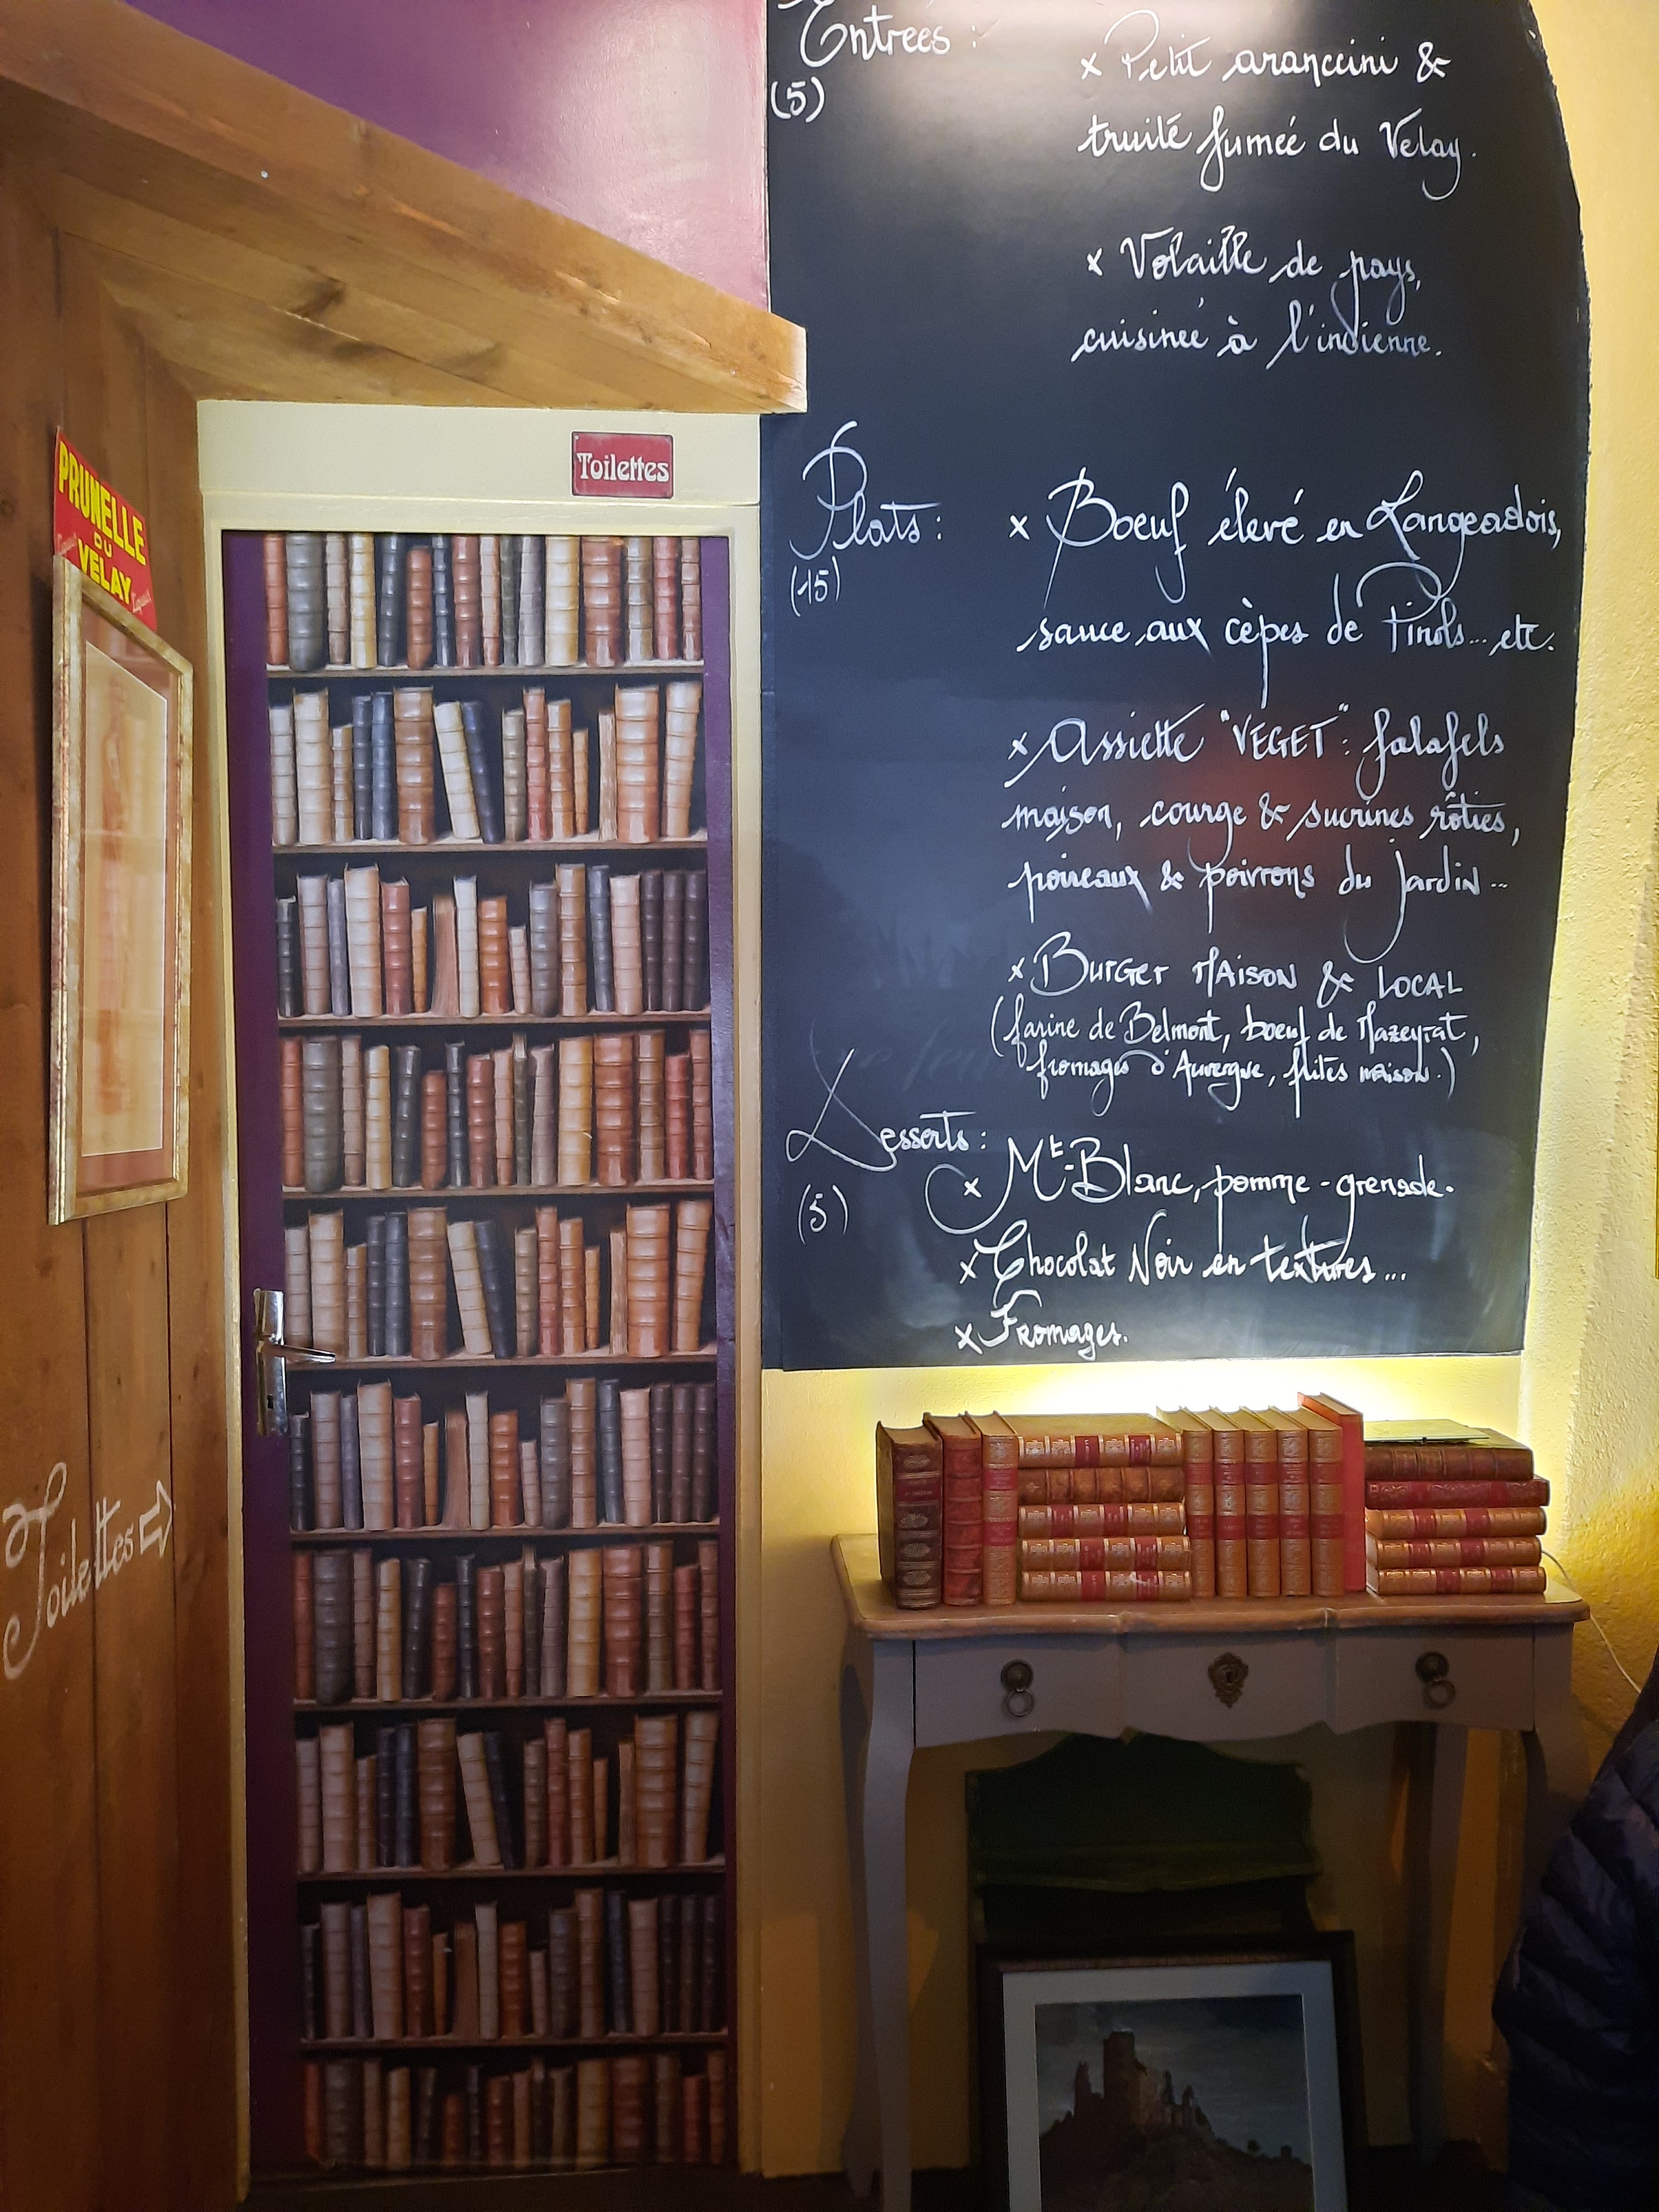 Entrées :
(5)
x Petit aranccini &
truite fumée du Velay.
x Volaille de pays,
cuisinée à l'indienne.
Plats :
(15)
x Boeuf élevé en Langeadois,
sauce aux cèpes de Pinols... etc.
x Assiette "VEGET" : falafels
maison, courge & sucrines rôties,
poireaux & poivrons du jardin...
x BURGER MAISON & LOCAL
(farine de Belmont, boeuf de Mazeyrat,
fromages d'Auvergne, frites maison.)
Desserts :
(5)
x Mt-Blanc, pomme-grenade.
x Chocolat Noir en textures...
x Fromages.
Toilettes
PRUNELLE
DU
VELAY
Toilettes ⇨